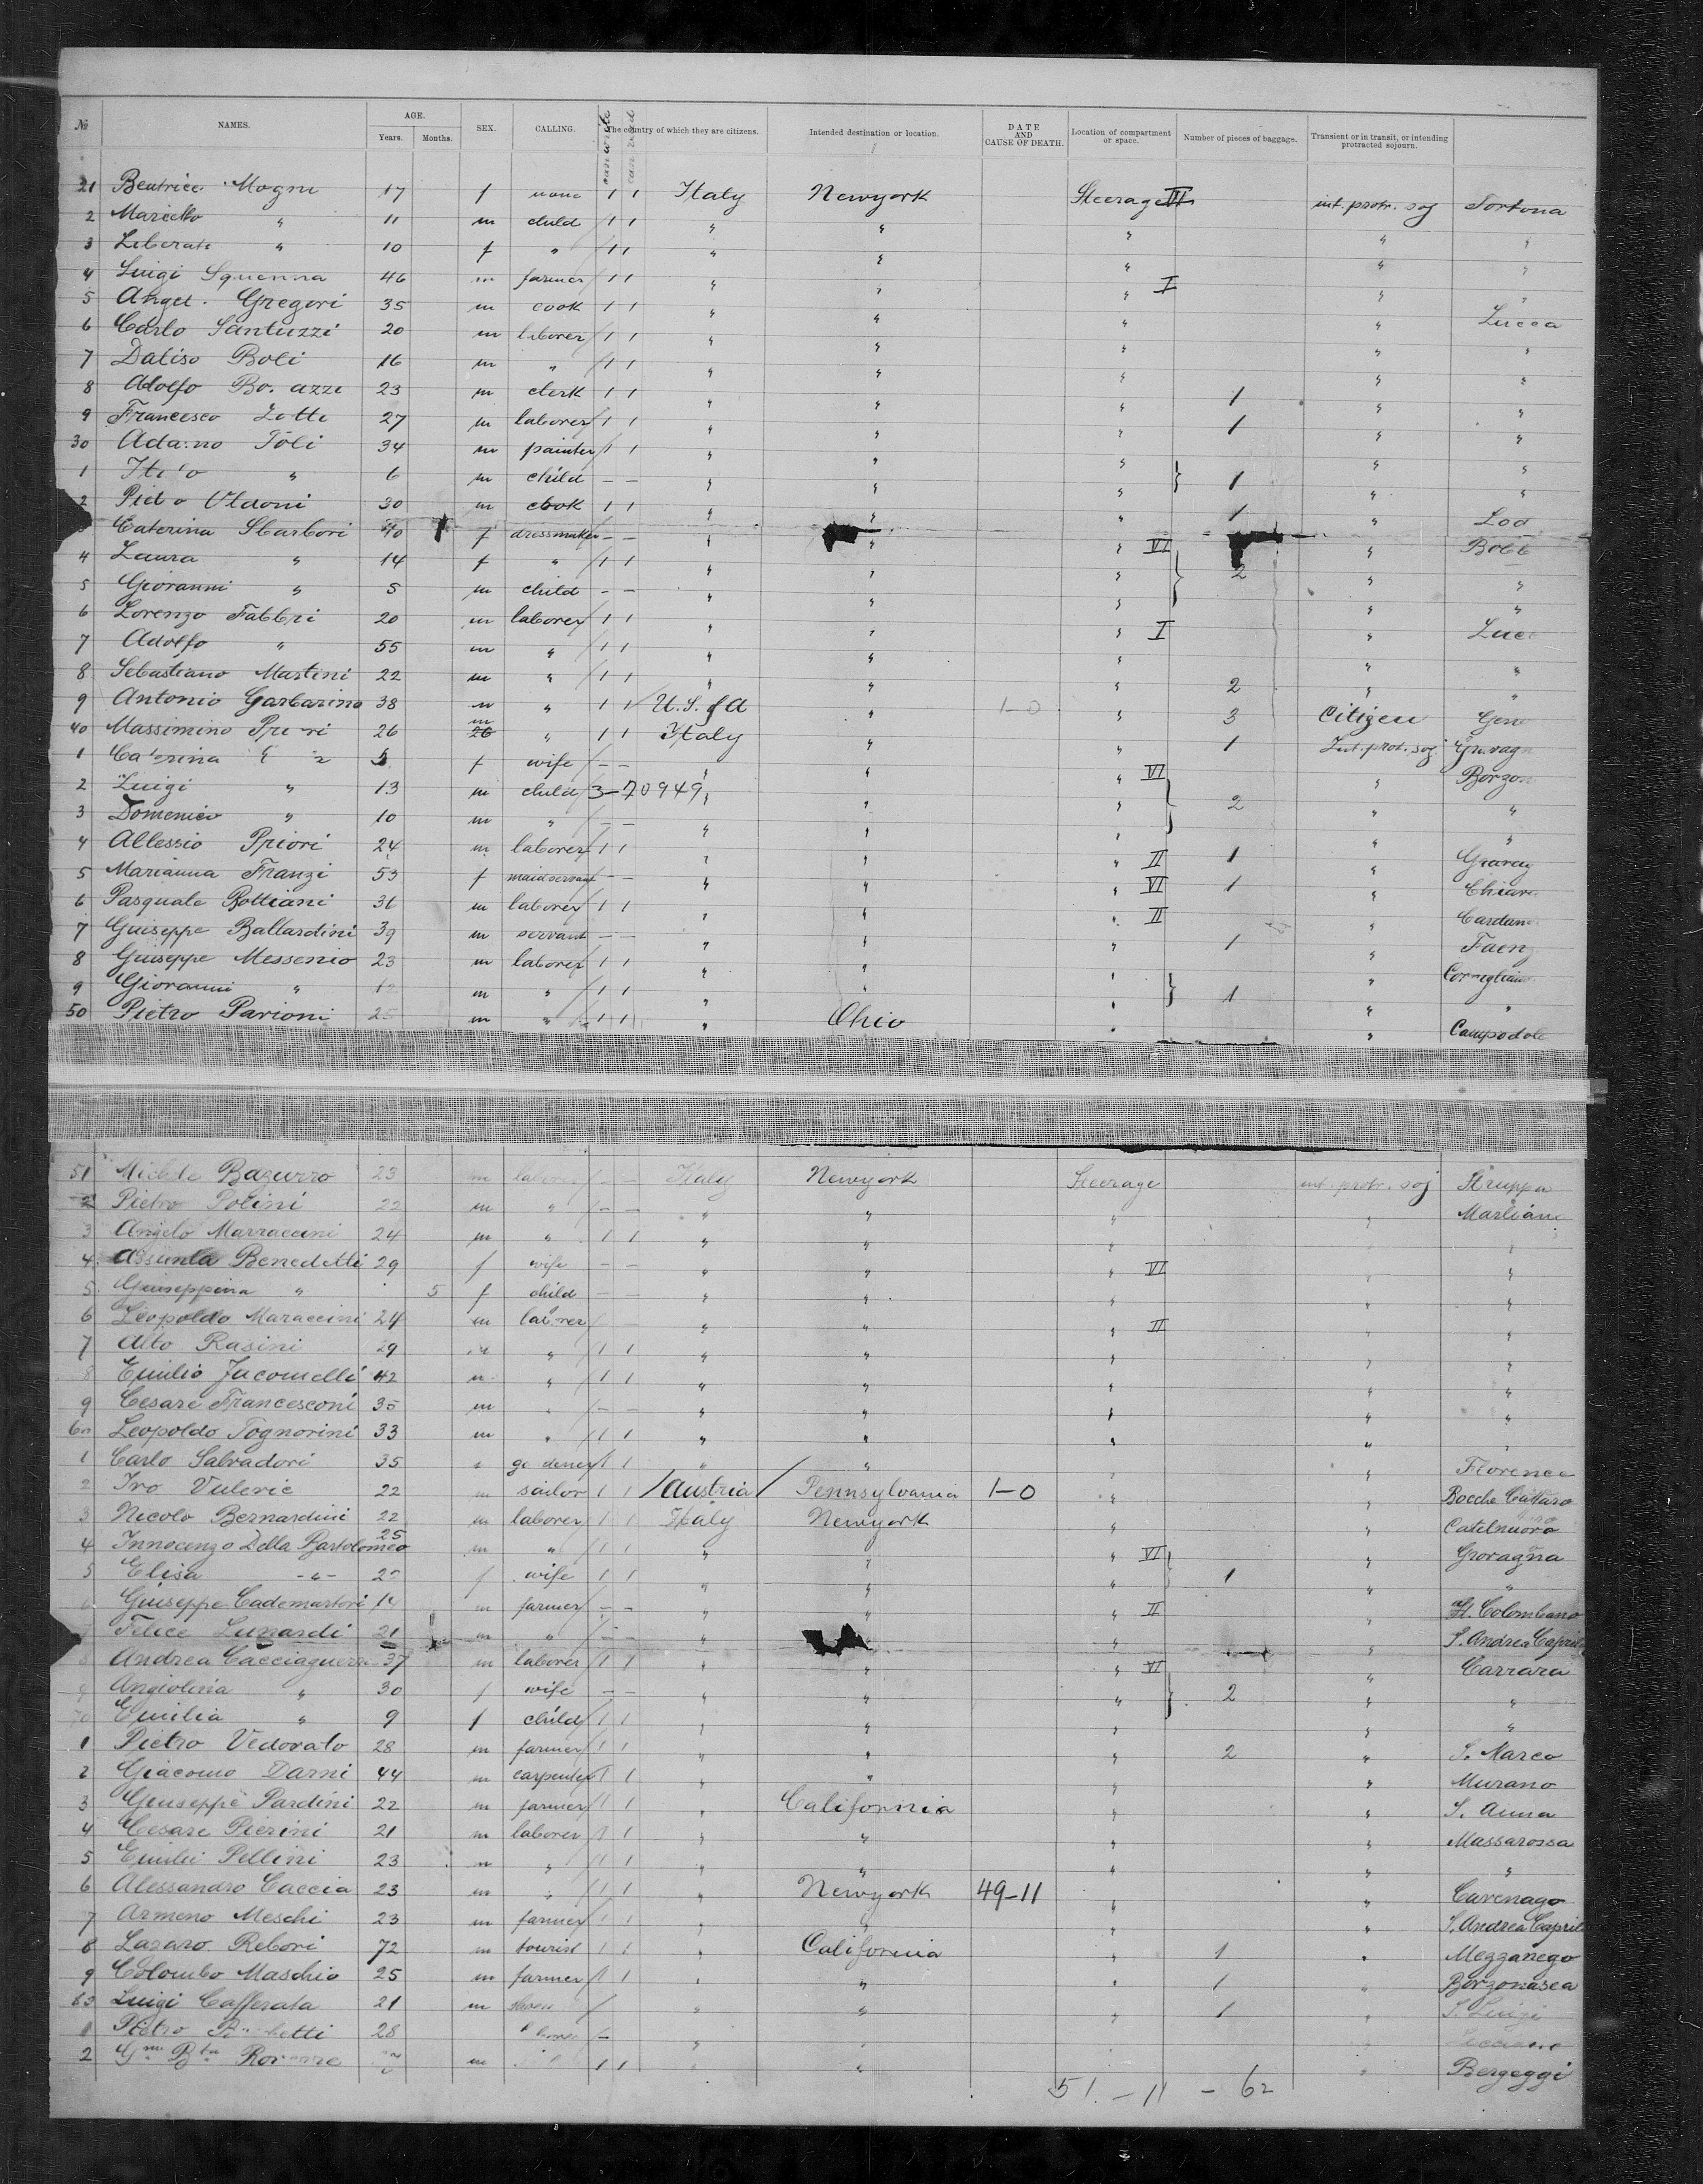 № NAMES. AGE. Years. Months. SEX. CALLING. can write can read The country of which they are citizens. Intended destination or location. DATE AND CAUSE OF DEATH. Location of compartment or space. Number of pieces of baggage. Transient or in transit, or intending protracted sojourn.
21 Beatrice Mogni 17 f none 1 1 Italy Newyork Steerage VI int. protr. soj Tortona
2 " 11 m child 1 1 " " " " "
3 " 10 f " 1 1 " " " " "
4 Luigi 46 m farmer 1 1 " " " I " "
5 Angel. Gregori 35 m cook 1 1 " " " " Lucca
6 Carlo Santuzzi 20 m laborer 1 1 " " " " "
7 Daliso Boli 16 m " 1 1 " " " " "
8 Adolfo 23 m clerk 1 1 " " " 1 " "
9 Francesco 27 m laborer 1 1 " " " 1 " "
30 Adamo Poli 34 m painter 1 1 " " " " "
1 " 6 m child — — " " " 1 " "
2 30 m cook 1 1 " " " 1 "
Caterina Sbarbori 40 f dressmaker — — " " " VI "
4 Laura " 14 f " 1 1 " " " 2 " "
5 Giovanni " 5 m child — — " " " " "
6 Lorenzo Fabbri 20 m laborer 1 1 " " " I "
7 Adolfo " 55 m " 1 1 " " " " "
8 Sebastiano Martini 22 m " 1 1 " " " 2 " "
9 Antonio Garbarino 38 m " 1 1 U.S. of A " 1-0 " 3 Citizen
40 Massimino 26 m " 1 1 Italy " " 1 Int. prot. soj
1 f wife — — " " " VI "
2 Luigi " 13 m child 3-70949 " " " 2 " "
3 Domenico " 10 m " — — " " " " "
4 Allessio Ppiori 24 m laborer 1 1 " " " II 1 "
5 Marianna Franzi 53 f maid servant — — " " " VI 1 "
6 Pasquale Bottiani 36 m laborer 1 1 " " " II "
7 Guiseppe Ballardini 39 m servant — — " " " 1 " Faenz
8 Guiseppe Messenio 23 m laborer 1 1 " " " " Cornigliano
9 Giovanni " m " 1 1 " " " 1 " "
50 Pietro Parioni m " 1 1 " Ohio " "
51 Michele Bazurro 23 m laborer — — Italy Newyork Steerage int. protr. soj Struppa
2 Pietro Polini 22 m " — — " " " " Marliana
3 Angelo Marraccini 24 m " 1 1 " " " " "
4 Assunta Benedetti 29 f wife — — " " " VI " "
5 Guiseppina " 5 f child — — " " " " "
6 Leopoldo Maraccini 24 m laborer — — " " " II " "
7 Rasini 29 m " 1 1 " " " " "
8 Emilio Jacomelli 42 m " 1 1 " " " " "
9 Cesare Francesconi 35 m " — — " " " " "
60 Leopoldo Tognorini 33 m " 1 1 " " " " "
1 Carlo Salvadori 35 gardener 1 1 " " " " Florence
2 Ivo Vuleric 22 m sailor 1 1 Austria Pennsylvania 1-0 " " Bocche Cattaro
3 Nicolo Bernardini 22 m laborer 1 1 Italy Newyork " " Catelnuovo
4 Innocenzo Della Bartolomeo 25 m " 1 1 " " " VI " Groragna
5 Elisa -"- f wife 1 1 " " " 1 " "
Guiseppe Cademartori 14 m farmer — — " " " II " St. Colombano
Felice Lunardi 21 m " — — " " " S. Andrea Capril
Andrea Cacciaguerra 37 m laborer 1 1 " " " VI " Carrara
9 Angiolina " 30 f wife — — " " " 2 " "
70 Emilia " 9 f child 1 1 " " " " "
1 Pietro Vedovato 28 m farmer 1 1 " " " 2 " S. Marco
2 Giacomo Darni 44 m carpenter 1 1 " " " " Murano
3 Giuseppe Pardini 22 m farmer 1 1 " California " " S. Anna
4 Cesare Pierini 21 m laborer 1 1 " " " " Massarossa
5 Pellini 23 m " 1 1 " " " " "
6 Alessandro Caccia 23 m " 1 1 " Newyork 49-11 " " Cavenago
7 Armeno Meschi 23 m farmer 1 1 " " " " S. Andrea Capril
8 Lazaro Rebori 72 m tourist 1 1 " California " 1 " Mezzanego
9 Colombo Maschio 25 m farmer 1 1 " " " 1 " Borzonasca
80 Luigi Cafferata 21 m " " " 1 " S. Luigi
1 Pietro 28 " " "
2 m 1 1 " " " Bergeggi
51 - 11 - 62